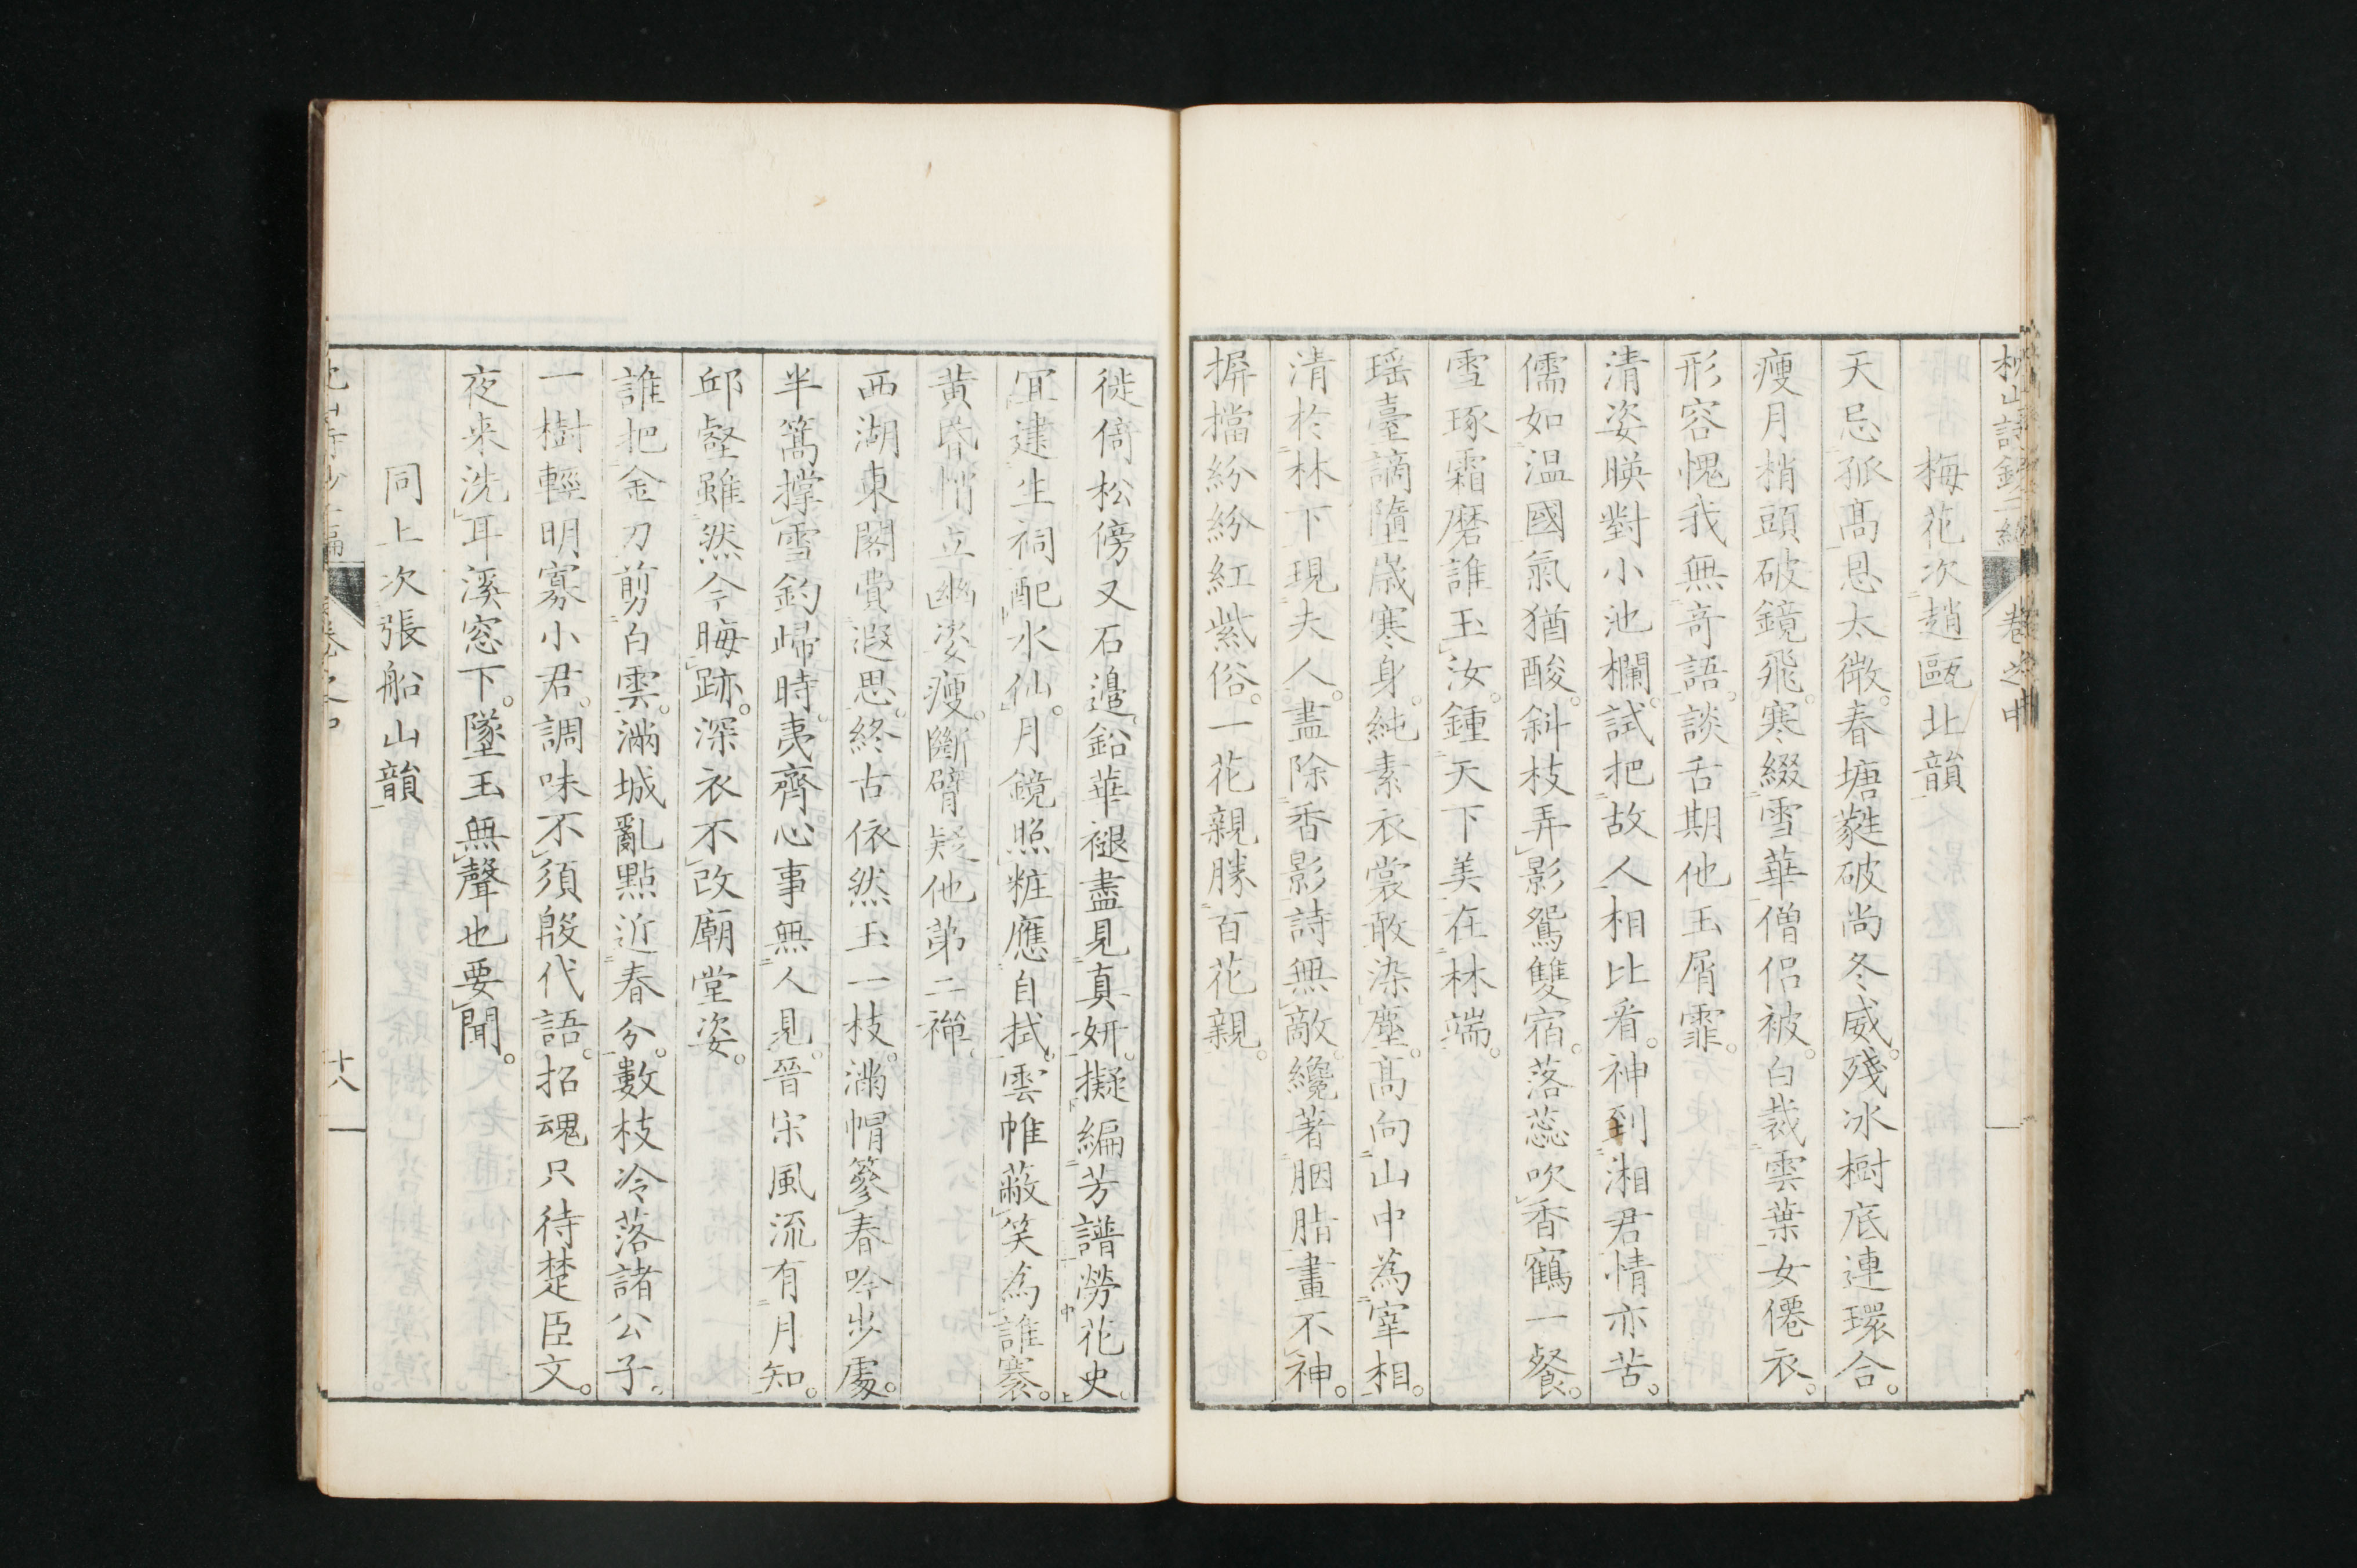 枕山詩鈔二編 卷之中
梅花次趙甌北韻
天忌孤高恩太微。春塘蕤破尚冬威。殘冰樹底連環合。
瘦月梢頭破鏡飛。寒綴雪華僧侶被。白裁雲葉女僊衣。
形容愧我無奇語。談舌期他玉屑霏。
清姿暎對小池欄。試把故人相比看。神到湘君情亦苦。
儒如温國氣猶酸。斜枝弄影鴛雙宿。落蕊吹香鶴一餐。
雪琢霜磨誰玉汝。鍾天下美在林端。
瑶臺謫墮歲寒身。純素衣裳敢染塵。高向山中為宰相。
清於林下現夫人。盡除香影詩無敵。纔著胭脂畫不神。
摒擋紛紛紅紫俗。一花親勝百花親。
徙倚松傍又石邊。鉛華褪盡見真妍。擬編芳譜勞花史。
冝建生祠配水仙。月鏡照粧應自拭。雲帷蔽笑為誰褰。
黃昏悄立幽姿瘦。斷臂疑他第二禪。
西湖東閣賞遐思。終古依然玉一枝。滿帽篸春吟步處。
半篙撑雪釣歸時。夷齊心事無人見。晉宋風流有月知。
邱壑雖然今晦跡。深衣不改廟堂姿。
誰把金刀剪白雲。滿城亂點近春分。數枝冷落諸公子。
一樹輕明寡小君。調味不須殷代語。招魂只待楚臣文。
夜来洗耳溪窓下。墜玉無聲也要聞。
同上次張船山韻
十八